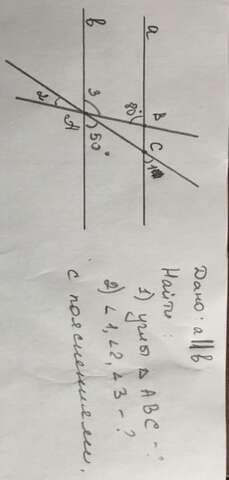 a
b
B
80°
C
1
3
2
A
50°
Дано: a || b
Найти:
1) углы Δ ABC - ?
2) ∠1, ∠2, ∠3 - ?
с пояснениями.